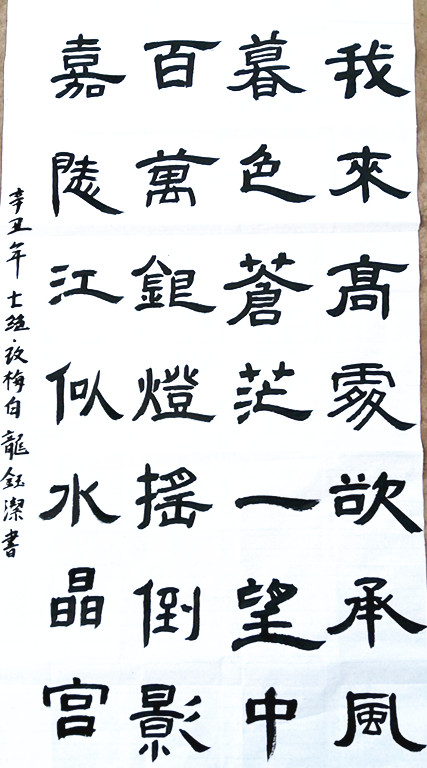 我來髙處欲承風
暮色蒼茫一望中
百萬銀燈搖倒影
嘉陵江似水晶宮
辛丑年 七絕改梅白 龍鈺潔書